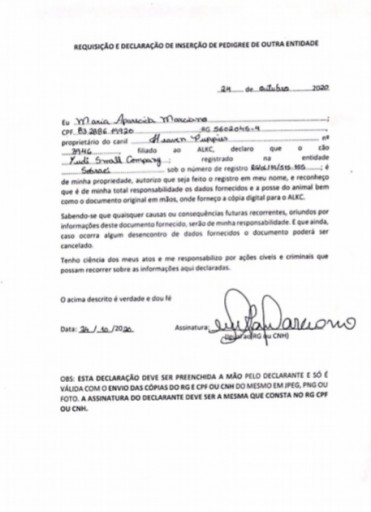 REQUISIÇÃO E DECLARAÇÃO DE INSERÇÃO DE PEDIGREE DE OUTRA ENTIDADE
24 de outubro 2020
Eu Maria Aparecida Marciano ;
CPF RG 5602045-4
proprietário do canil Heaven Puppies nº
3946 , filiado ao ALKC, declaro que o cão
Small Company ; registrado na entidade
Sobraci sob o número de registro ; é
de minha propriedade, autorizo que seja feito o registro em meu nome, e reconheço
que é de minha total responsabilidade os dados fornecidos e a posse do animal bem
como o documento original em mãos, onde forneço a cópia digital para o ALKC.
Sabendo-se que quaisquer causas ou consequências futuras recorrentes, oriundos por
informações deste documento fornecido, serão de minha responsabilidade. E que ainda,
caso ocorra algum desencontro de dados fornecidos o documento poderá ser
cancelado.
Tenho ciência dos meus atos e me responsabilizo por ações cíveis e criminais que
possam recorrer sobre as informações aqui declaradas.
O acima descrito é verdade e dou fé
Data: 24/10/2020 Assinatura: Marciano
(igual ao RG ou CNH)
OBS: ESTA DECLARAÇÃO DEVE SER PREENCHIDA A MÃO PELO DECLARANTE E SÓ É
VÁLIDA COM O ENVIO DAS CÓPIAS DO RG E CPF OU CNH DO MESMO EM JPEG, PNG OU
FOTO. A ASSINATURA DO DECLARANTE DEVE SER A MESMA QUE CONSTA NO RG CPF
OU CNH.